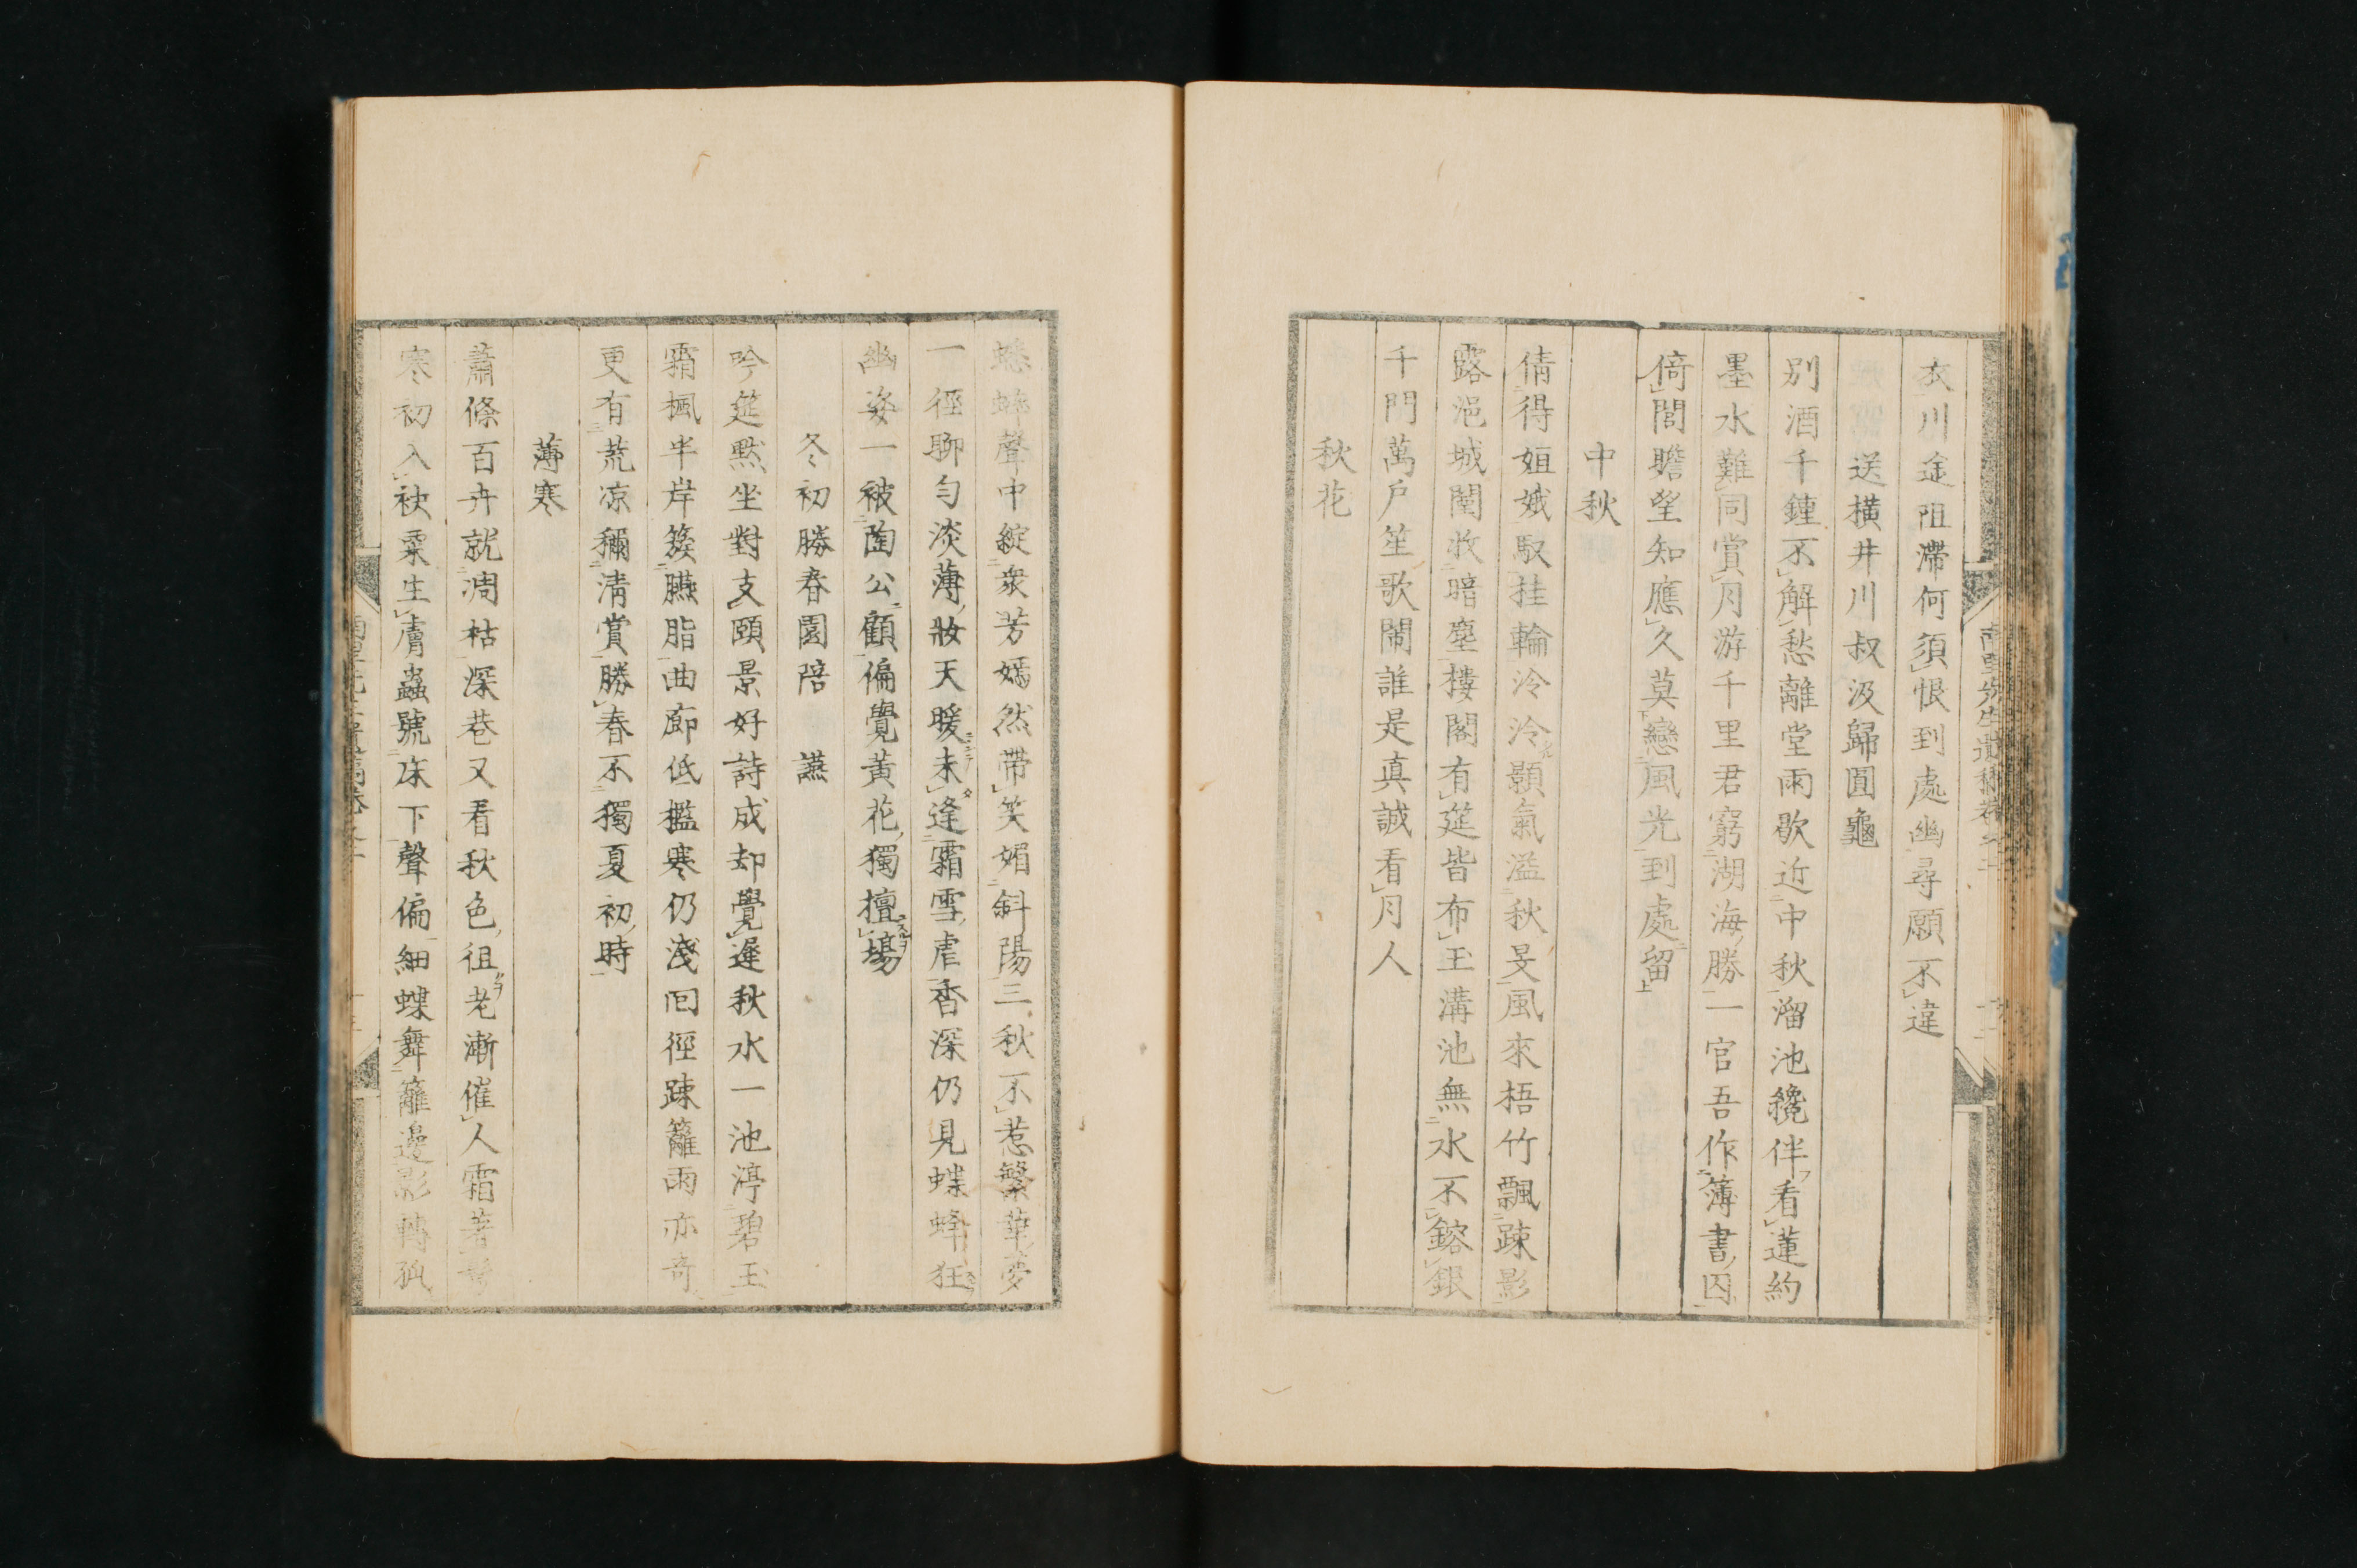 衣川途阻滯何須恨到處幽尋願不違
送橫井川叔汲歸圓龜
別酒千鍾不解愁離堂雨歇近中秋溜池纔伴看蓮約
墨水難同賞月游千里君窮湖海勝一官吾作簿書囚
倚閭瞻望知應久莫戀風光到處留
中秋
倩得姮娥馭桂輪泠泠顥氣溢秋旻風來梧竹飄踈影
露浥城闉收暗塵樓閣有莚皆布玉溝池無水不鎔銀
千門萬戶笙歌鬧誰是真誠看月人
秋花
蟋蟀聲中綻衆芳嫣然帶笑媚斜陽三秋不惹繁華夢
一徑聊勻淡薄妝天暖未逢霜雪虐香深仍見蝶蜂狂
幽姿一被陶公顧偏覺黃花獨擅場
冬初勝春園陪讌
吟莚默坐對支頤景好詩成却覺遲秋水一池渟碧玉
霜楓半岸簇臙脂曲廊低檻寒仍淺囘徑踈籬雨亦奇
更有荒凉稱清賞勝春不獨夏初時
薄寒
蕭條百卉就凋枯深巷又看秋色徂老漸催人霜著
寒初入袂粟生膚蟲號床下聲偏細蝶舞籬邊影轉孤